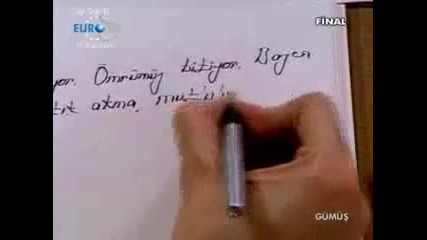 EURO
FINAL
yor. Ömrümüz bitiyor. Bazen
atma, mutlu
GÜMÜŞ